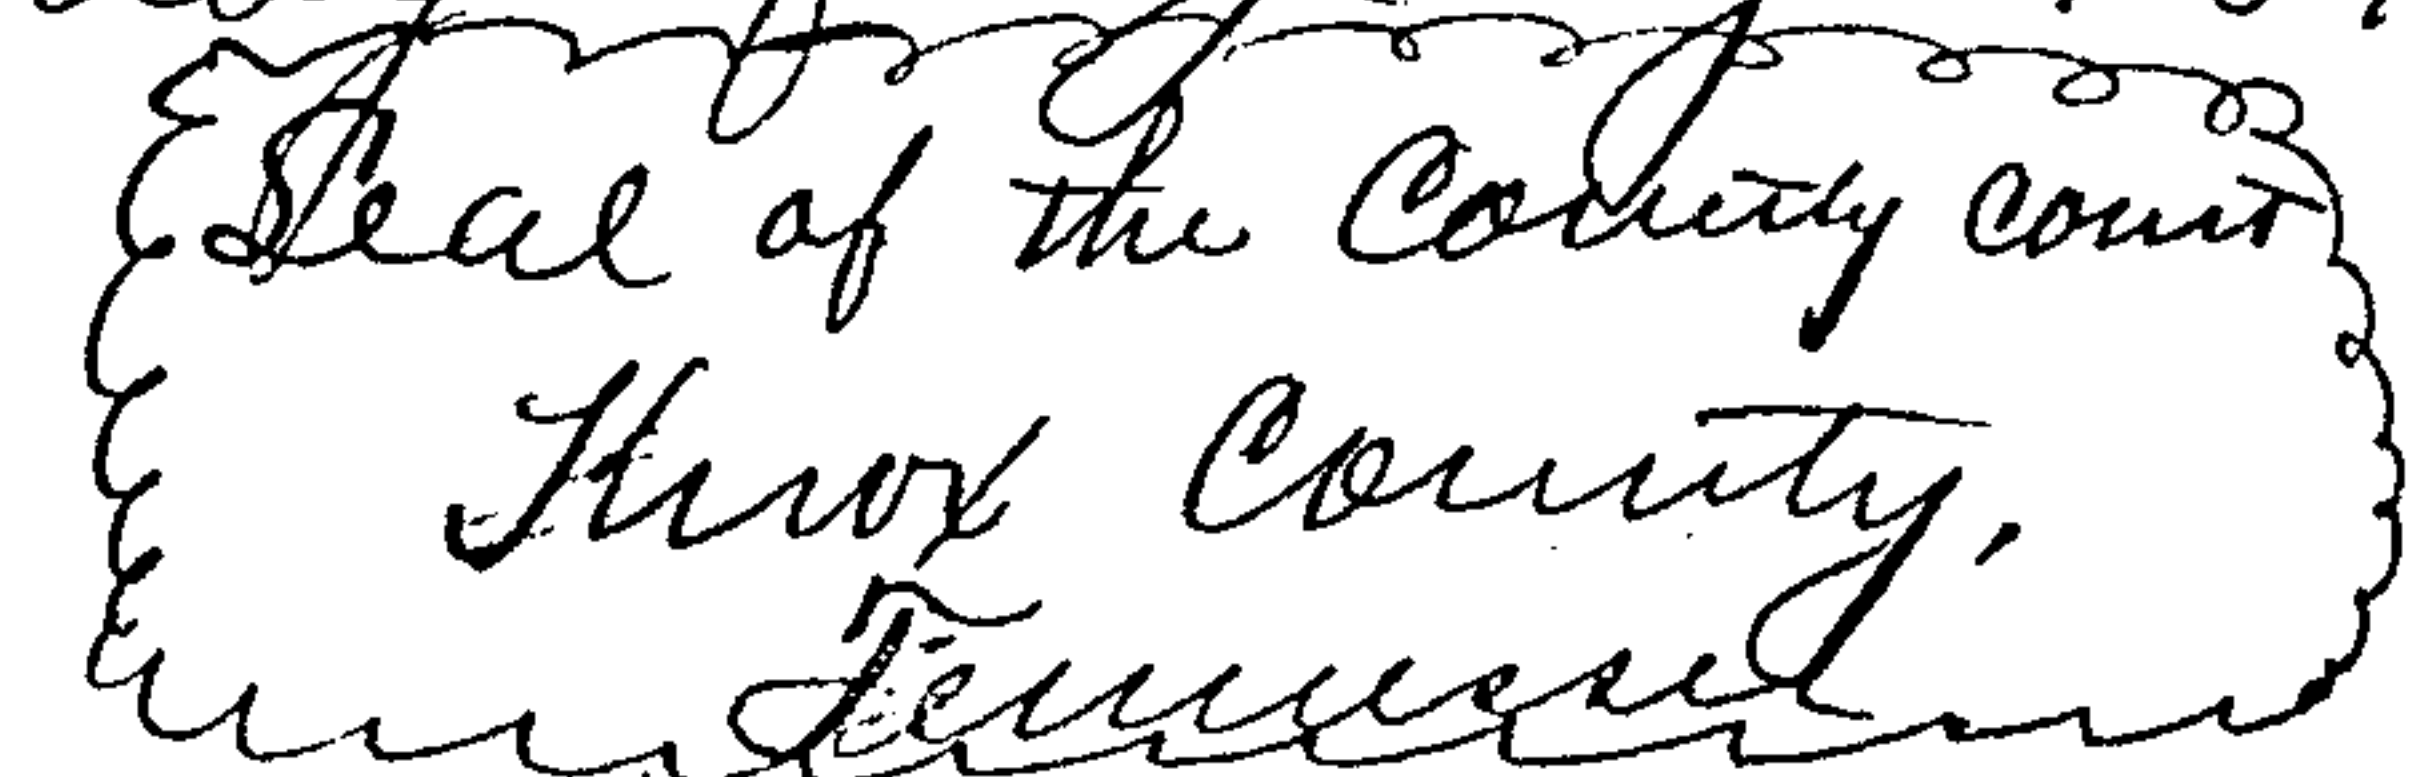 Seal of the County Court
Knox County,
Tennessee